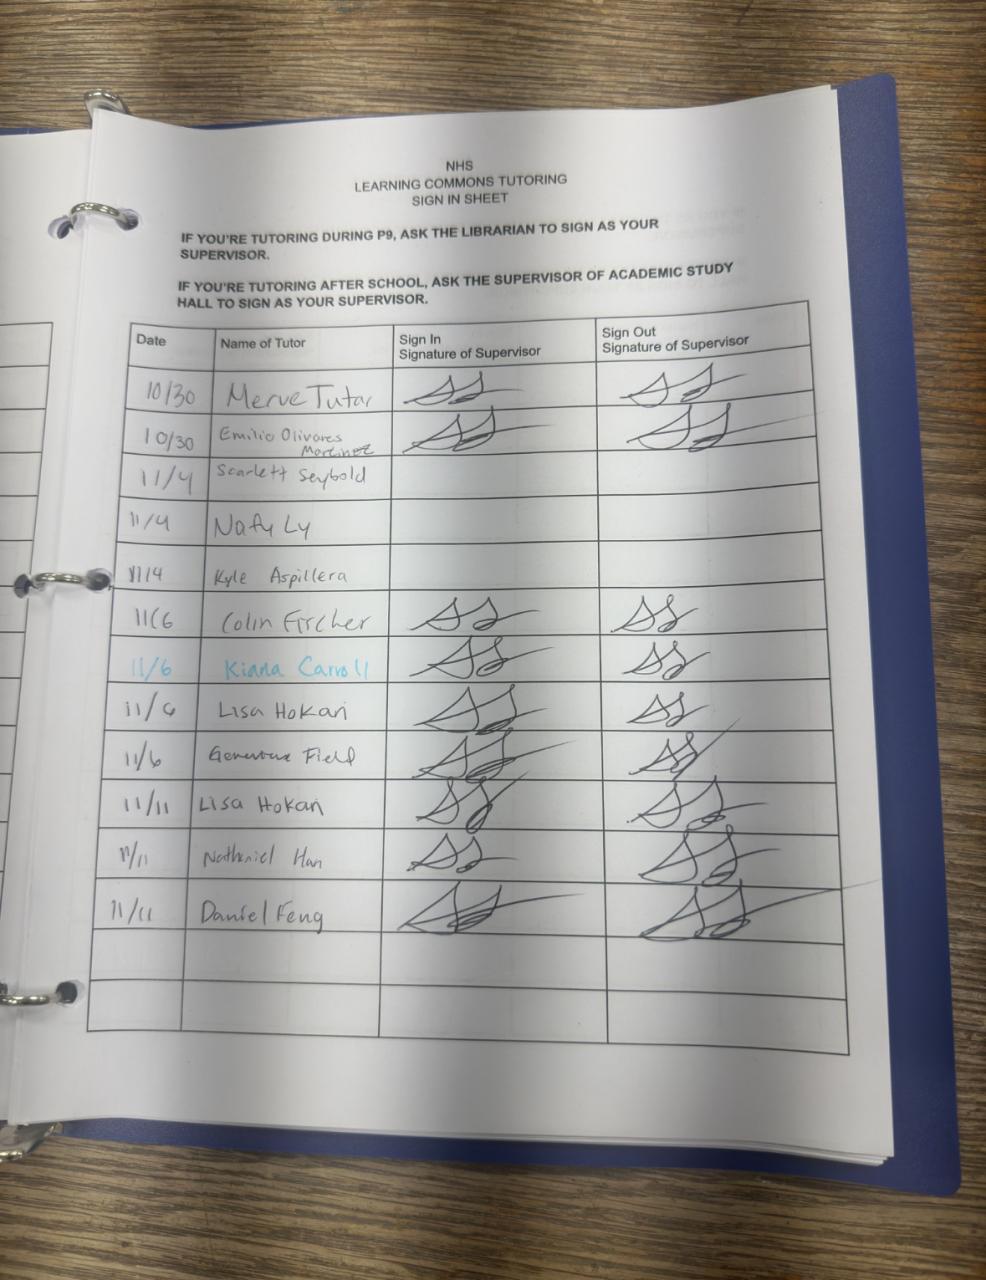 NHS
LEARNING COMMONS TUTORING
SIGN IN SHEET
IF YOU'RE TUTORING DURING P9, ASK THE LIBRARIAN TO SIGN AS YOUR
SUPERVISOR.
IF YOU'RE TUTORING AFTER SCHOOL, ASK THE SUPERVISOR OF ACADEMIC STUDY
HALL TO SIGN AS YOUR SUPERVISOR.
Date Name of Tutor Sign In Sign Out
Signature of Supervisor Signature of Supervisor
10/30 Merve Tutar
10/30 Emilio Olivares
Martinez
11/4 Scarlett Seybold
11/4 Nafy Ly
11/4 Kyle Aspillera
11/6 Colin
11/6 Kiana Carroll
11/6 Lisa Hokari
11/6 Field
11/11 Lisa Hokari
11/11 Nathaniel Han
11/11 Daniel Feng